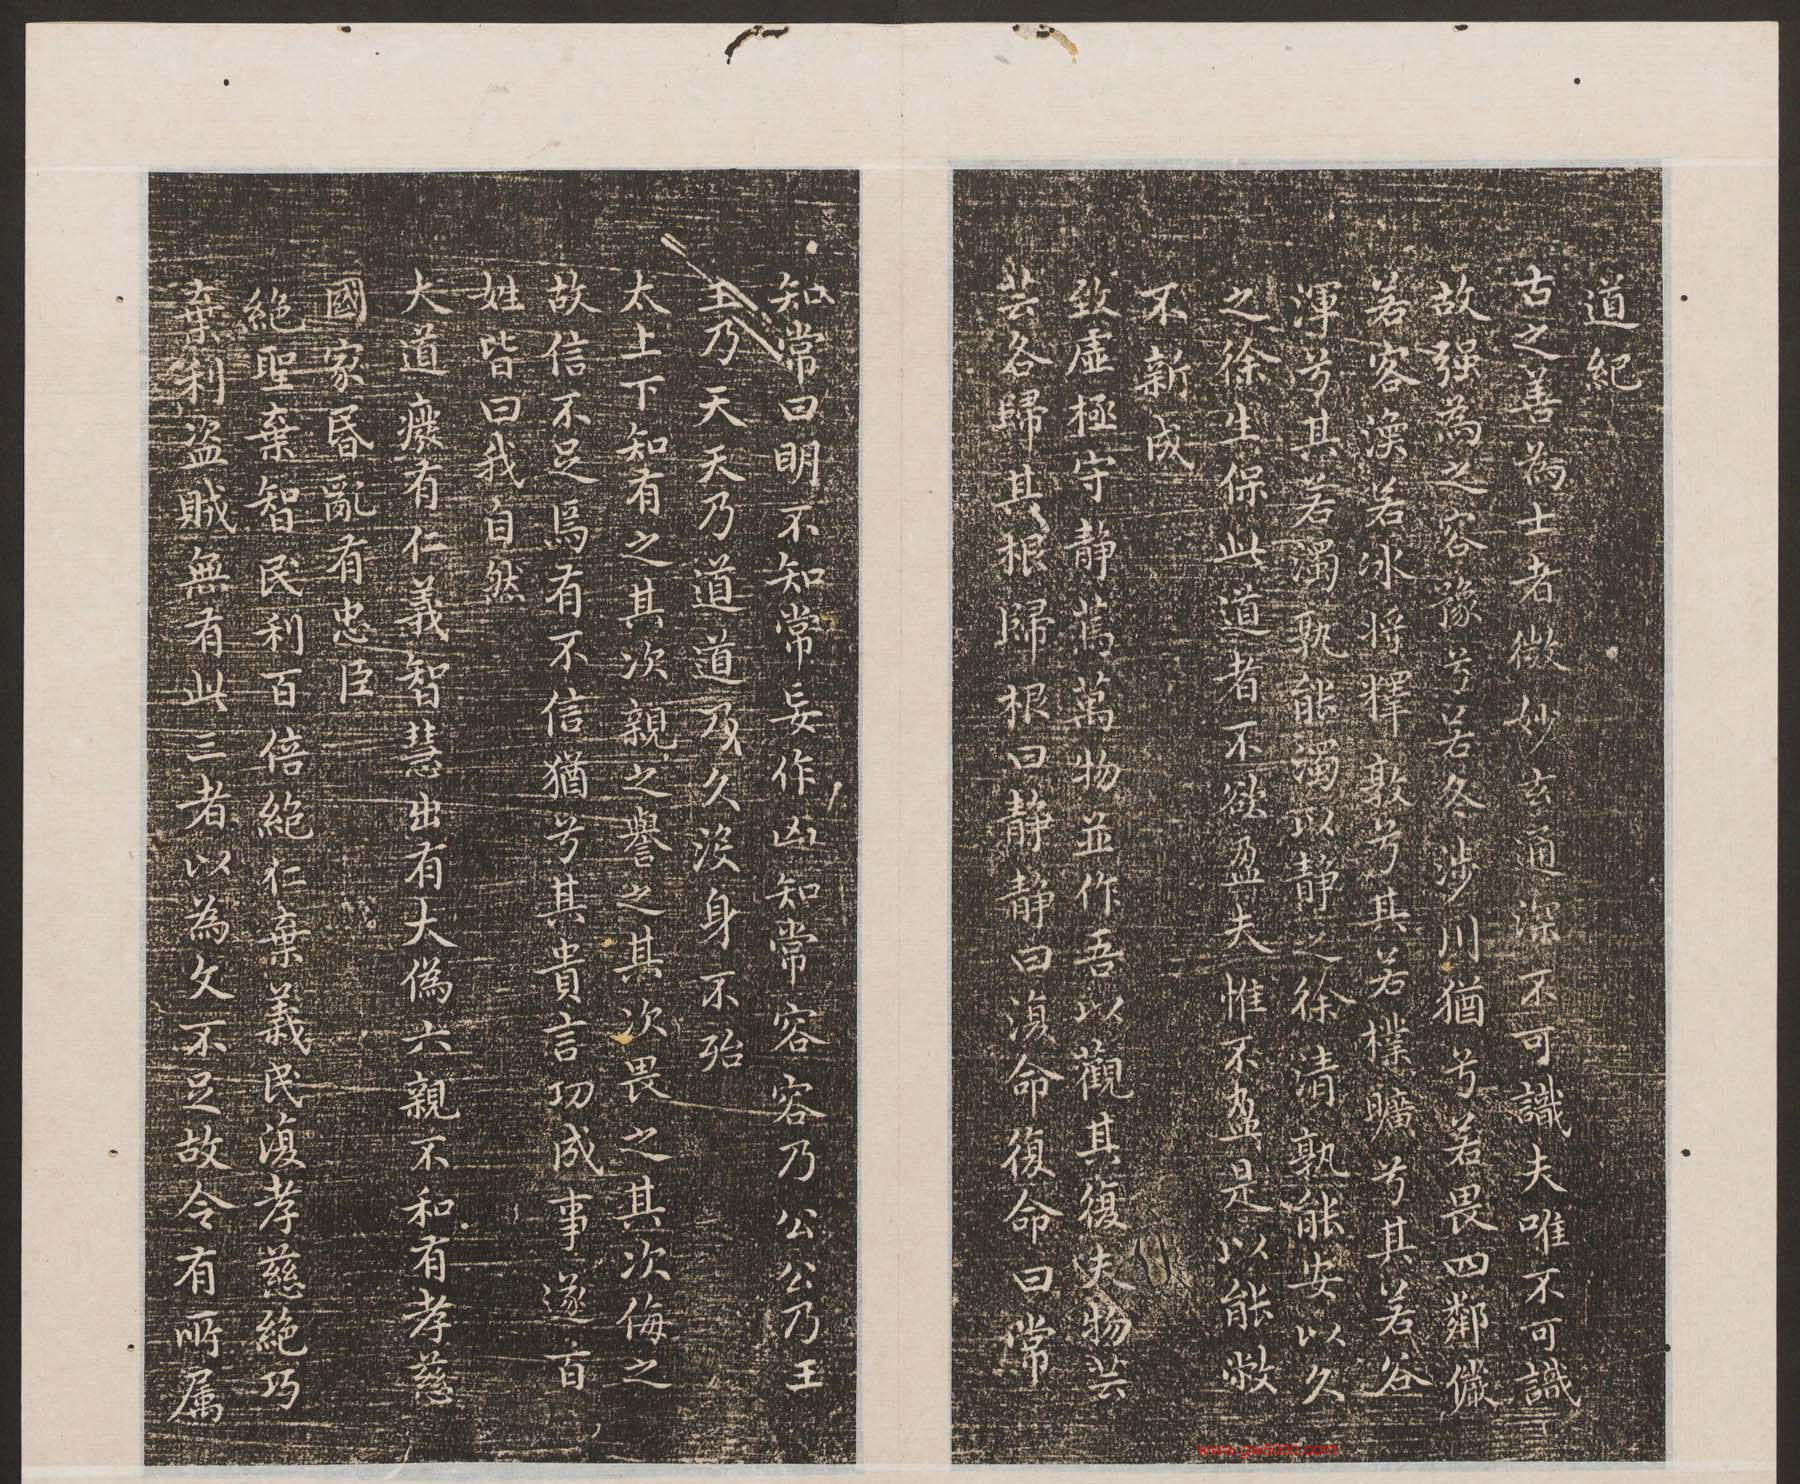 道紀
古之善為士者微妙玄通深不可識夫唯不可識
故强為之容豫兮若冬涉川猶兮若畏四鄰儼
若客渙若冰將釋敦兮其若樸曠兮其若谷
渾兮其若濁孰能濁以靜之徐清孰能安以久
之徐生保此道者不欲盈夫惟不盈是以能敝
不新成
致虛極守靜篤萬物並作吾以觀其復夫物芸
芸各歸其根歸根曰靜靜曰復命復命曰常
知常曰明不知常妄作凶知常容容乃公公乃王
王乃天天乃道道乃久沒身不殆
太上下知有之其次親之譽之其次畏之其次侮之
故信不足焉有不信猶兮其貴言功成事遂百
姓皆曰我自然
大道癈有仁義智慧出有大偽六親不和有孝慈
國家昬亂有忠臣
絕聖棄智民利百倍絕仁棄義民復孝慈絕巧
棄利盜賊無有此三者以為文不足故令有所属
www.gw5000.com